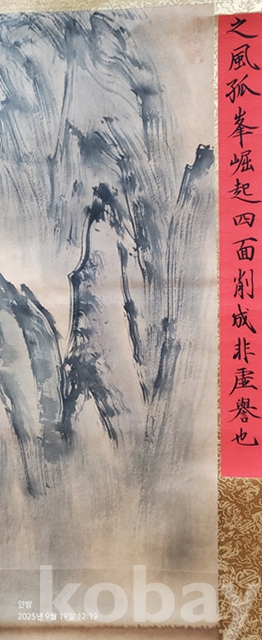 之風孤峯崛起四面削成非虛譽也
안방
2025년 9월 19일 12:19
kobay